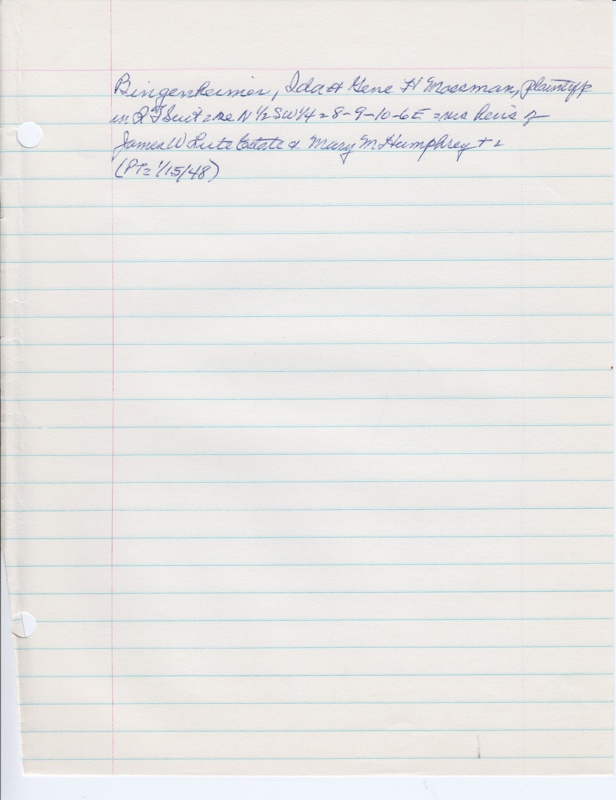 Bingenheimer, Ida & Gene H Mossman, plaintiffs
in Q T Suit = re N 1/2 SW 1/4 = 8-9-10-6E = vs heirs of
James W Lute Estate & Mary M Humphrey +
(PT= 1/15/48)